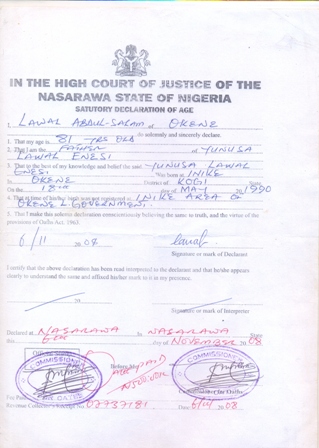 IN THE HIGH COURT OF JUSTICE OF THE
NASARAWA STATE OF NIGERIA
STATUTORY DECLARATION OF AGE
I, LAWAL ABDUL-SALAM of OKENE
do solemnly and sincerely declare.
1. That my age is 81 YRS OLD
2. That I am the FATHER of YUNUSA
LAWAL ENESI
3. That to the best of my knowledge and belief the said YUNUSA LAWAL
ENESI Was born at INIKE
In OKENE District of KOGI
On the 18TH day of MAY 1990
4. That at time of his/her birth was not registered at INIKE AREA OF
OKENE L GOVERNMENT.
5. That I make this solemn declaration conscientiously believing the same to truth, and the virtue of the
provisions of Oaths Act. 1963
6/11 2008
Signature or mark of Declarant
I certify that the above declaration has been read interpreted to the declarant and that he/she appears
clearly to understand the same and affixed his/her mark to it in my presence.
Signature or mark of Interpreter
Declared at NASARAWA In NASARAWA State
this 6th day of NOVEMBER 2008
Before Me
PAID
N500.00K
COMMISSIONER
COMMISSIONER
Commissioner for Oaths
Fee Paid
Revenue Collector's Receipt No 07737181 Date 6/11/2008